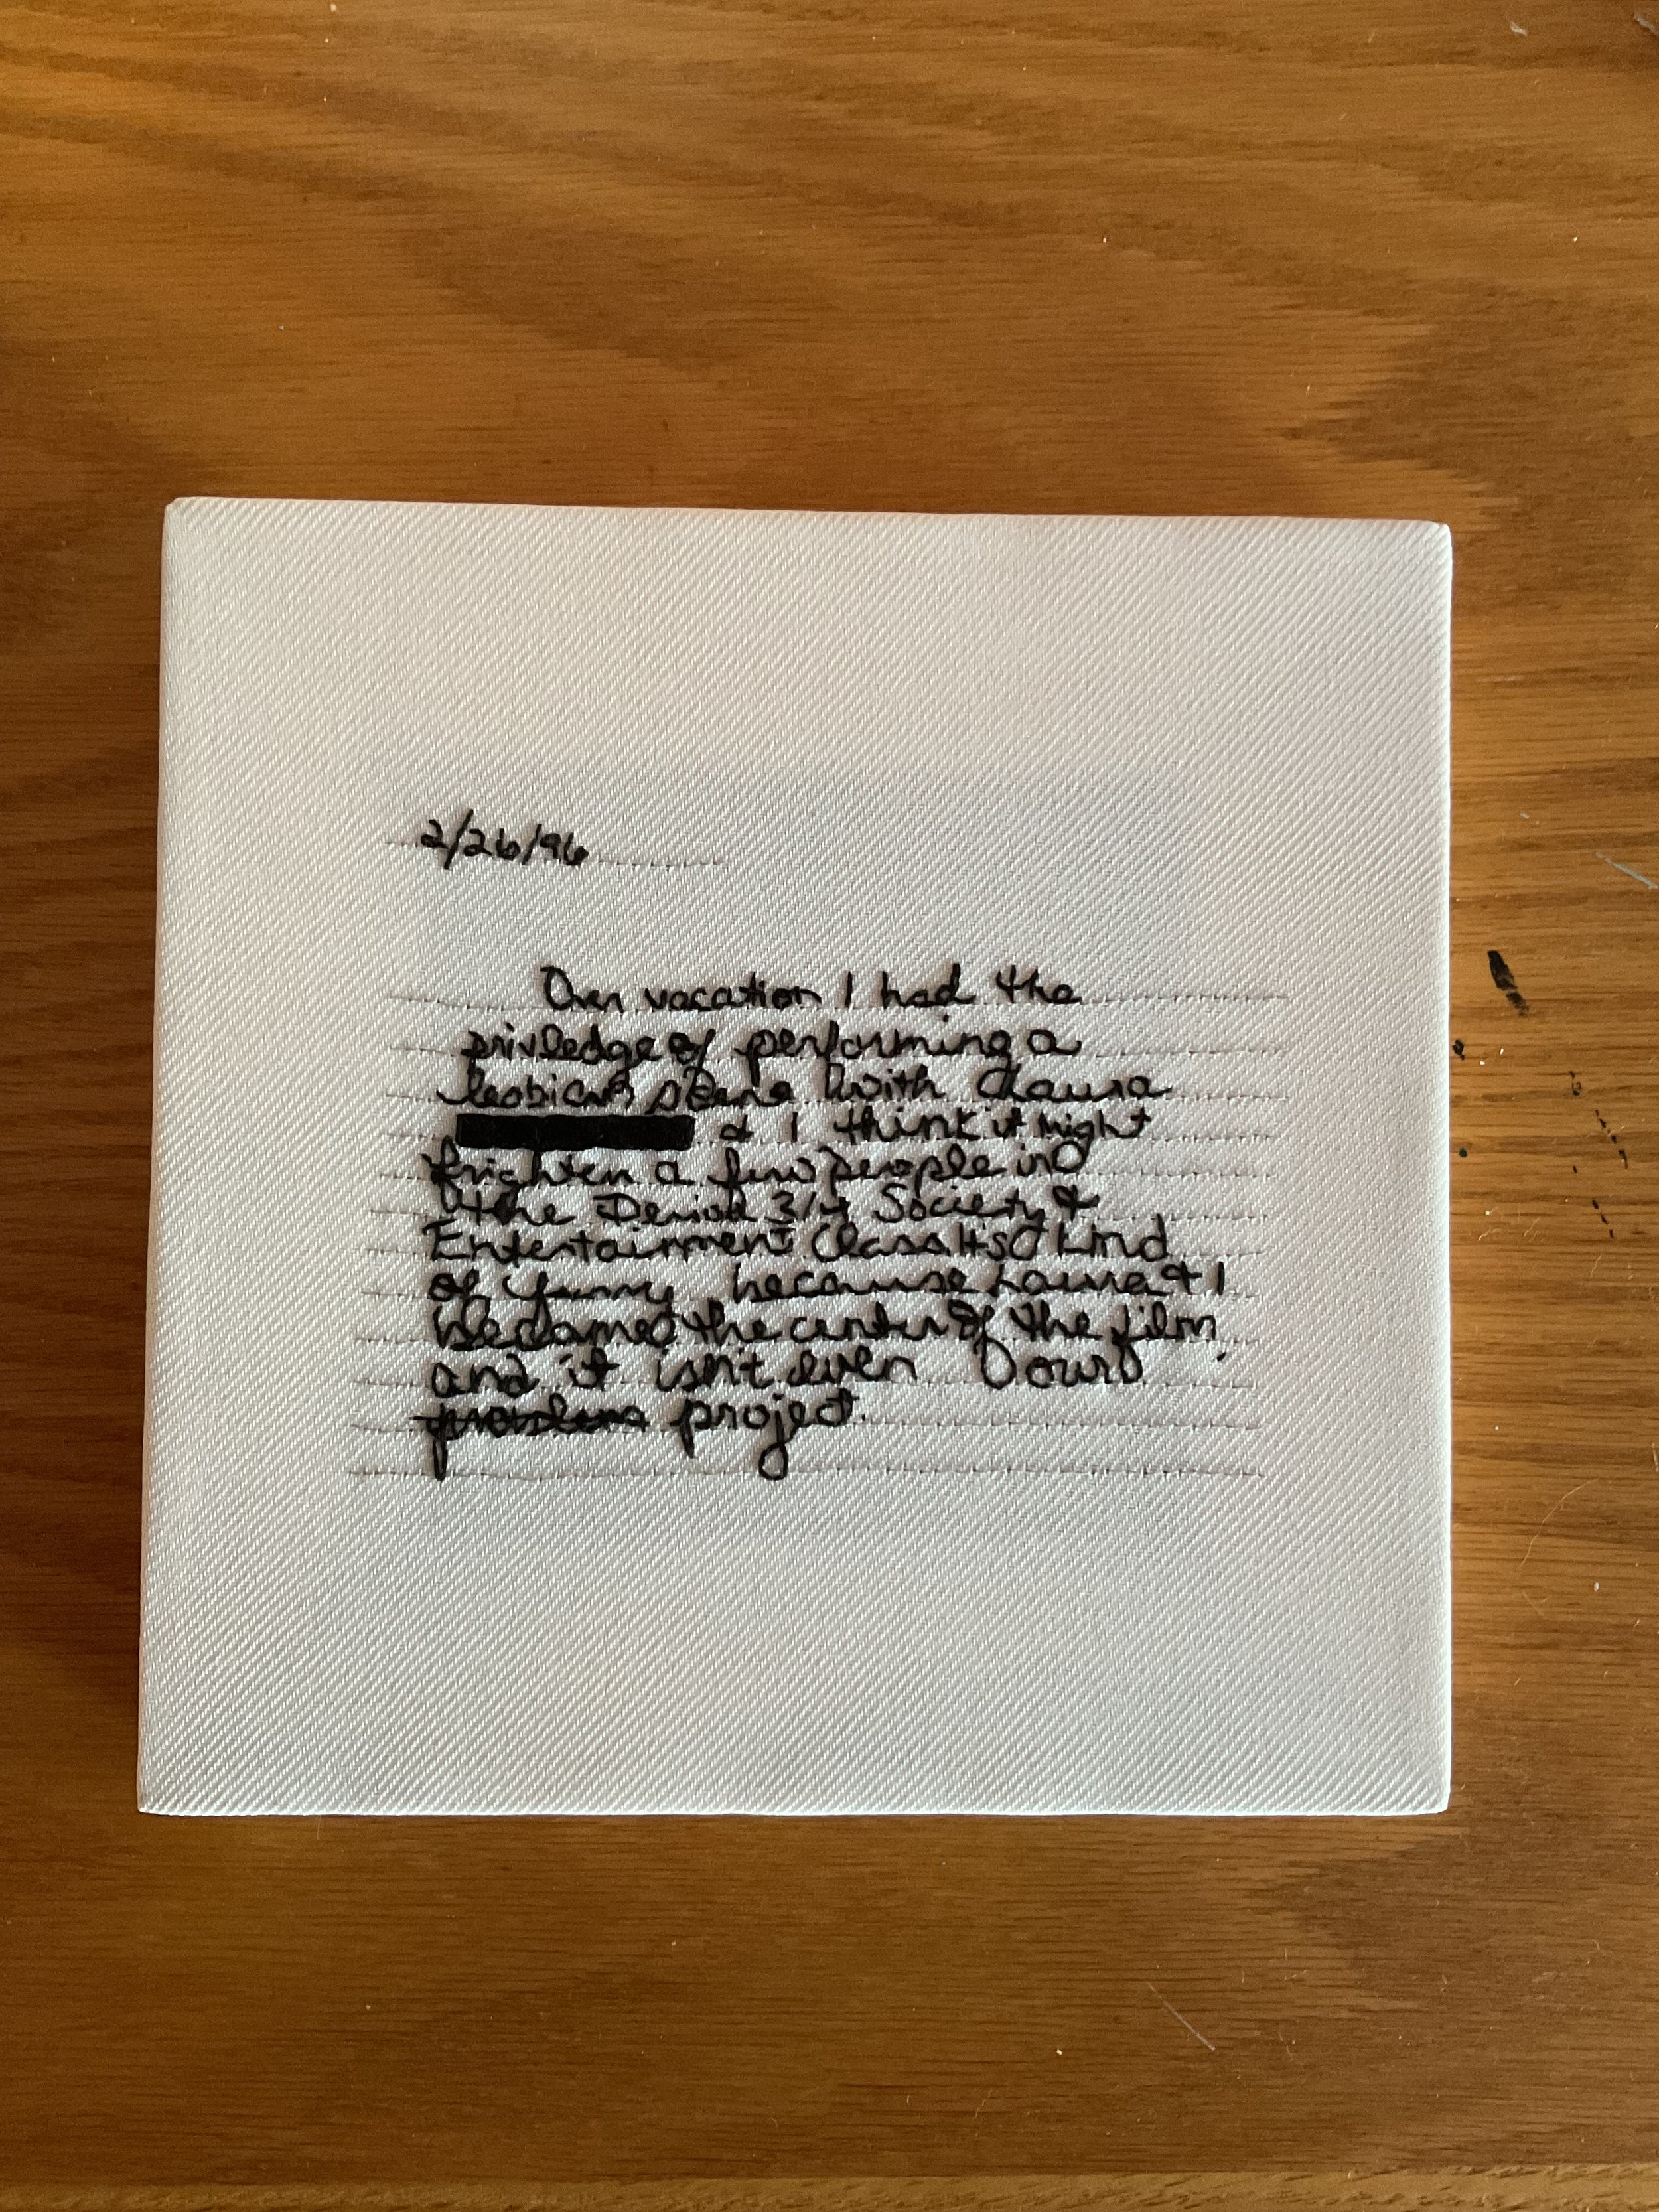 2/26/96
Over vacation I had the
priviledge of performing a
lesbian scene with Laura
& I think it might
frighten a few people in
the Period 3/4 Society &
Entertainment Class. Its kind
of funny because Laura & I
became the center of the film
and it isn't even our
problem project.